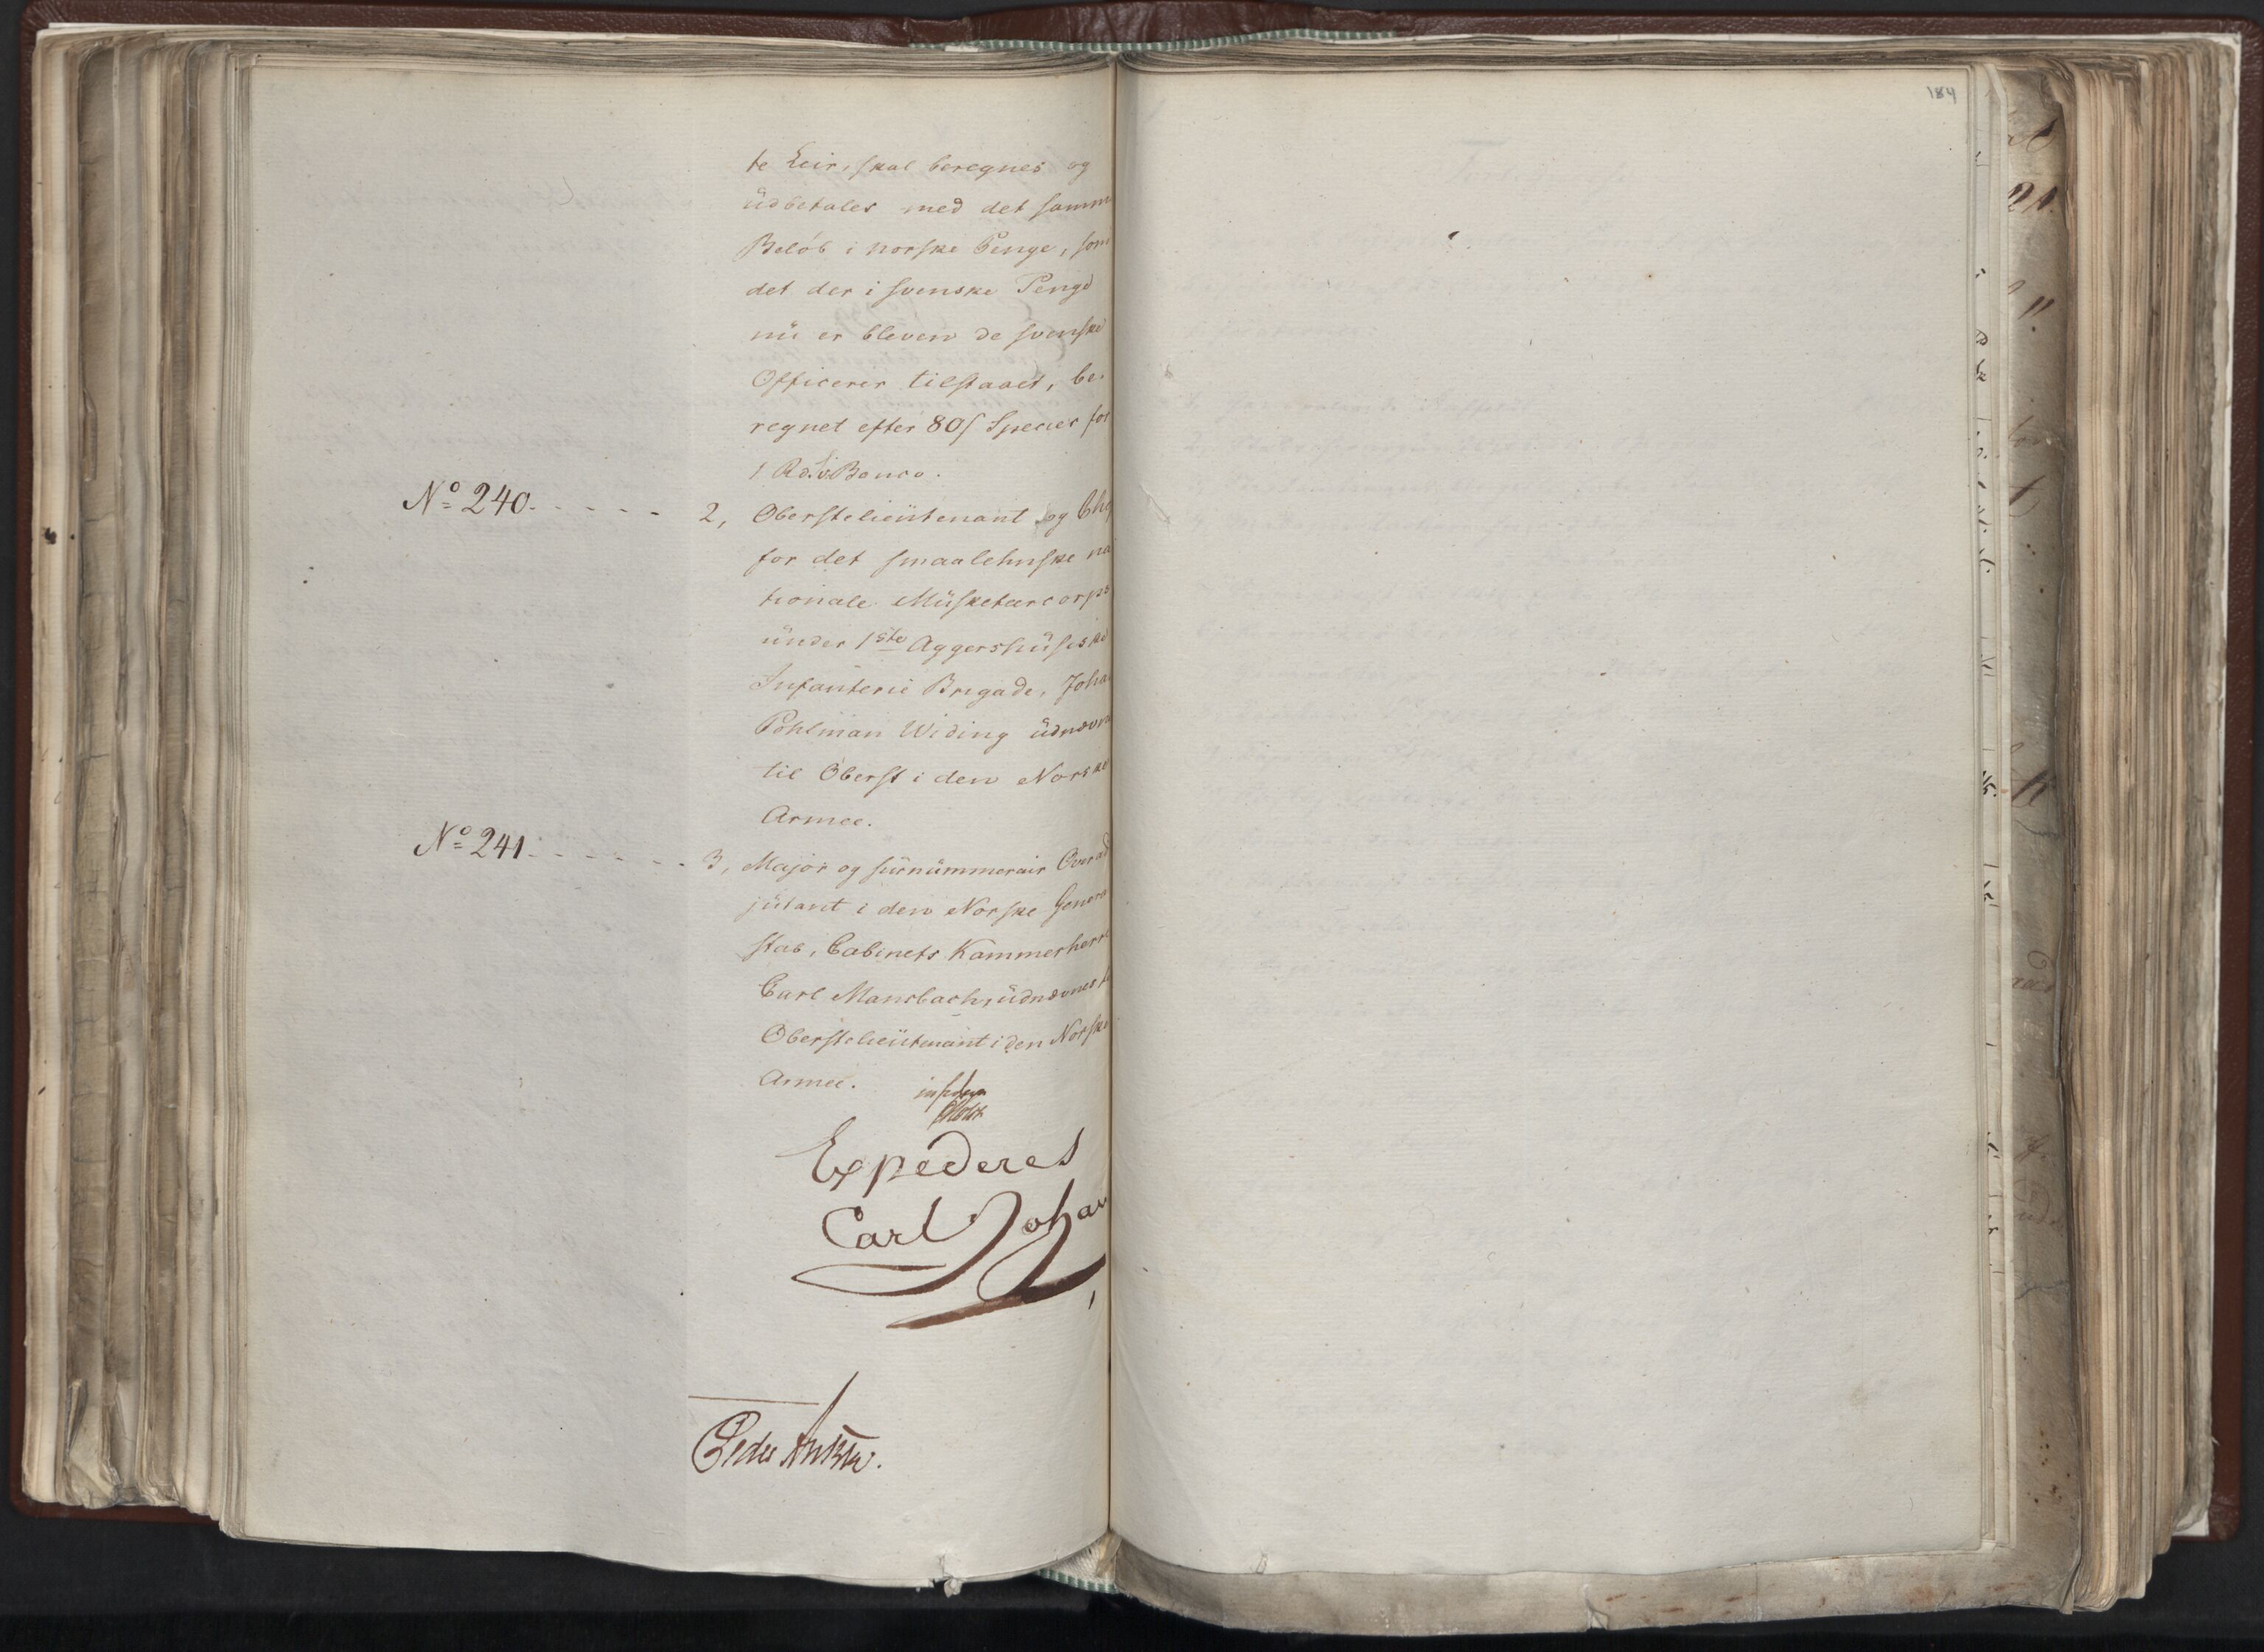 184
te Leir, skal beregnes og
üdbetales med det samm
Beløb i norske Penge, som
det der i svenske Penge
nü er bleven de svenske
Officerer tilstaaet, be-
regnet efter 80 ſ Species for
1 Rd. Sv. Banco.
No 240. - - - - - 2, Oberstelieütenant og Chef
for det smaalehnske na
tionale Müsketeercorps
ünder 1ste Aggershüsiske
Infanterie Brigade, Joha
Pohlman Widing üdnævn
til Oberst i den Norske
Armee.
No 241. - - - - - - 3, Major og sürnümmerair Overad
jütant i den Norske Genera
stab, Cabinets Kammerherre
Carl Mansbach, üdnævnes
Oberstelieütenant i den Norske
Armee.
Expederes
Carl Johan
Peder Anker.